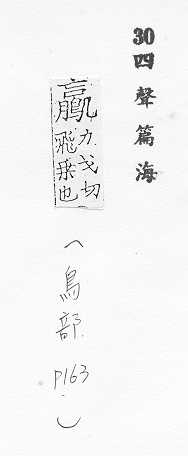 30四聲篇海
力戈切
飛也
(鳥部 P163)